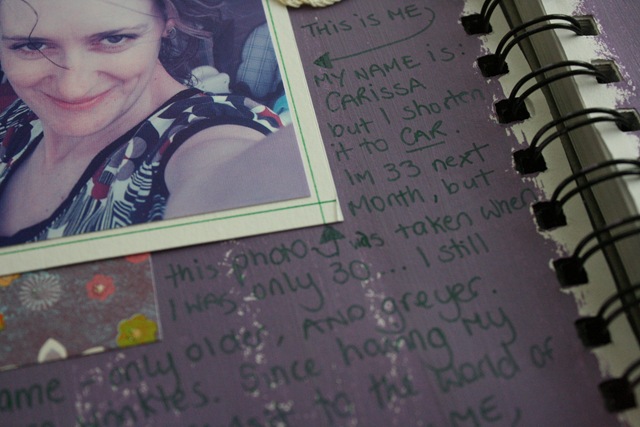 THIS IS ME
MY NAME IS:
CARISSA
but I shorten
it to CAR.
Im 33 next
Month, but
this photo was taken when
I was only 30... I still
ame - only older, AND greyer.
wrinkles. Since having My
to the world of
ME,